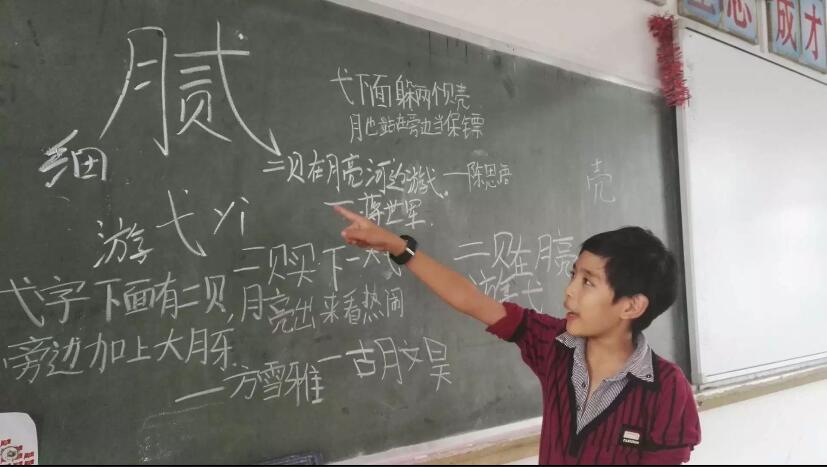 腻
弋下面躲两个贝壳
月也站在旁边当保镖
细
二贝在月亮河边游弋。—陈思
壳
游弋 yì
二贝买下一
二贝在月亮
游弋
弋字下面有二贝,月亮出来看热闹
旁边加上大月牙.
—方雪雅 —胡文昊
志成才